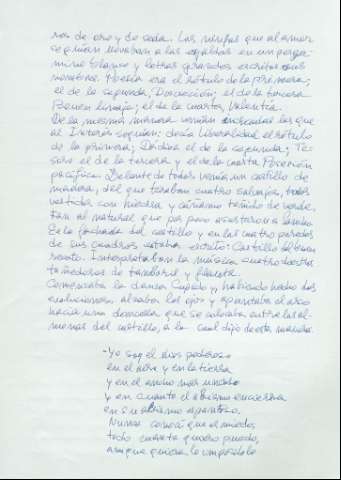 ras de oro y de seda. Las ninfas que al amor
seguían llevaban a las espaldas en un perga-
mino blanco y letras grandes escritos sus
nombres. Poesía era el rótulo de la primera;
el de la segunda, Discreción; el de la tercera
Buen linaje; el de la cuarta Valentía.
De la mesma manera venían las que
al Interés seguían: decía Liberalidad el rótulo
de la primera; Dádiva el de la segunda; Te-
soro el de la tercera y el de la cuarta Posesión
pacífica. Delante de todos venía un castillo de
madera, del que tiraban cuatro salvajes, todos
vestidos con hiedra y cáñamo teñido de verde.
tan al natural que por poco asustaron a Sancho.
En la fachada del castillo y en las cuatro paredes
de sus cuadros estaba escrito: Castillo del buen
recato. la música cuatro diestros
tañedores de tamboril y flauta.
Comenzaba la danza Cupido y, habiendo hecho dos
evoluciones, alzaba los ojos y apuntaba el arco
hacia una doncella que se colocaba entre las al-
menas del castillo, a la cual dijo de esta manera
-Yo soy el dios poderoso
en el aire y en la tierra
y en el ancho mar undoso
y en cuanto el abismo encierra
en su abismo espantoso.
Nunca conocí qué es miedo;
todo cuanto quiero puedo,
aunque quiera lo imposible